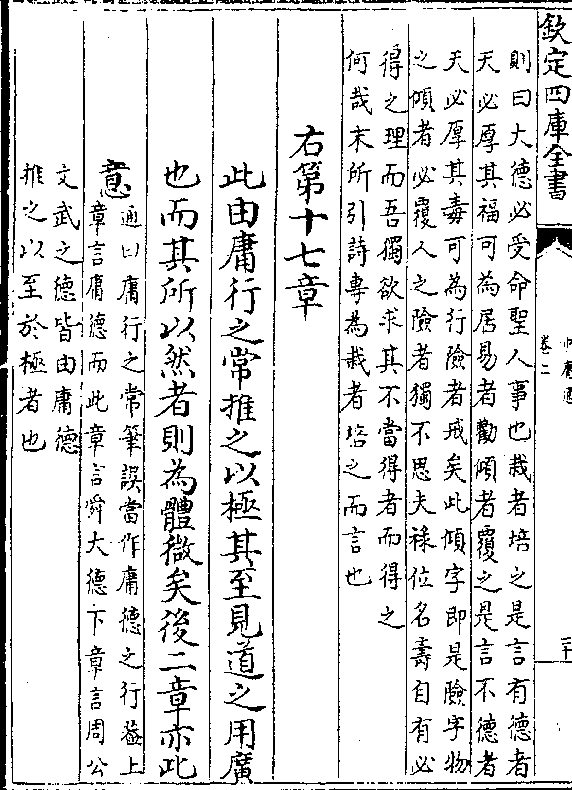 欽定四庫全書
卷二
則曰大德必受命聖人事也栽者培之是言有德者
天必厚其福可為居易者勸傾者覆之是言不德者
天必厚其毒可為行險者戒矣此傾字即是險字物
之傾者必覆人之險者獨不思夫祿位名壽自有必
得之理而吾獨欲求其不當得者而得之
何哉末所引詩專為栽者培之而言也
右第十七章
此由庸行之常推之以極其至見道之用廣
也而其所以然者則為體微矣後二章亦此
意
通曰庸行之常筆誤當作庸德之行蓋上
章言庸德而此章言舜大德下章言周公
文武之德皆由庸德
推之以至於極者也